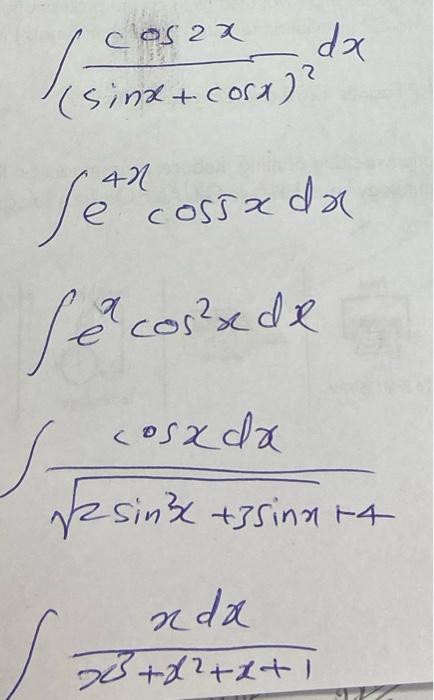 ∫ cos2x / (sinx + cosx)² dx
∫ e^{4x} cos5x dx
∫ e^x cos²x dx
∫ cosx dx / √(2sin²x + 3sinx + 4)
∫ x dx / (x³ + x² + x + 1)